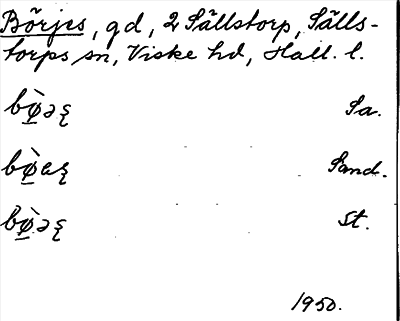 Börjes, gd, 2 Sällstorp, Sälls-
torps sn, Viske hd, Hall. l.
Sa.
Sand.
St.
1950.